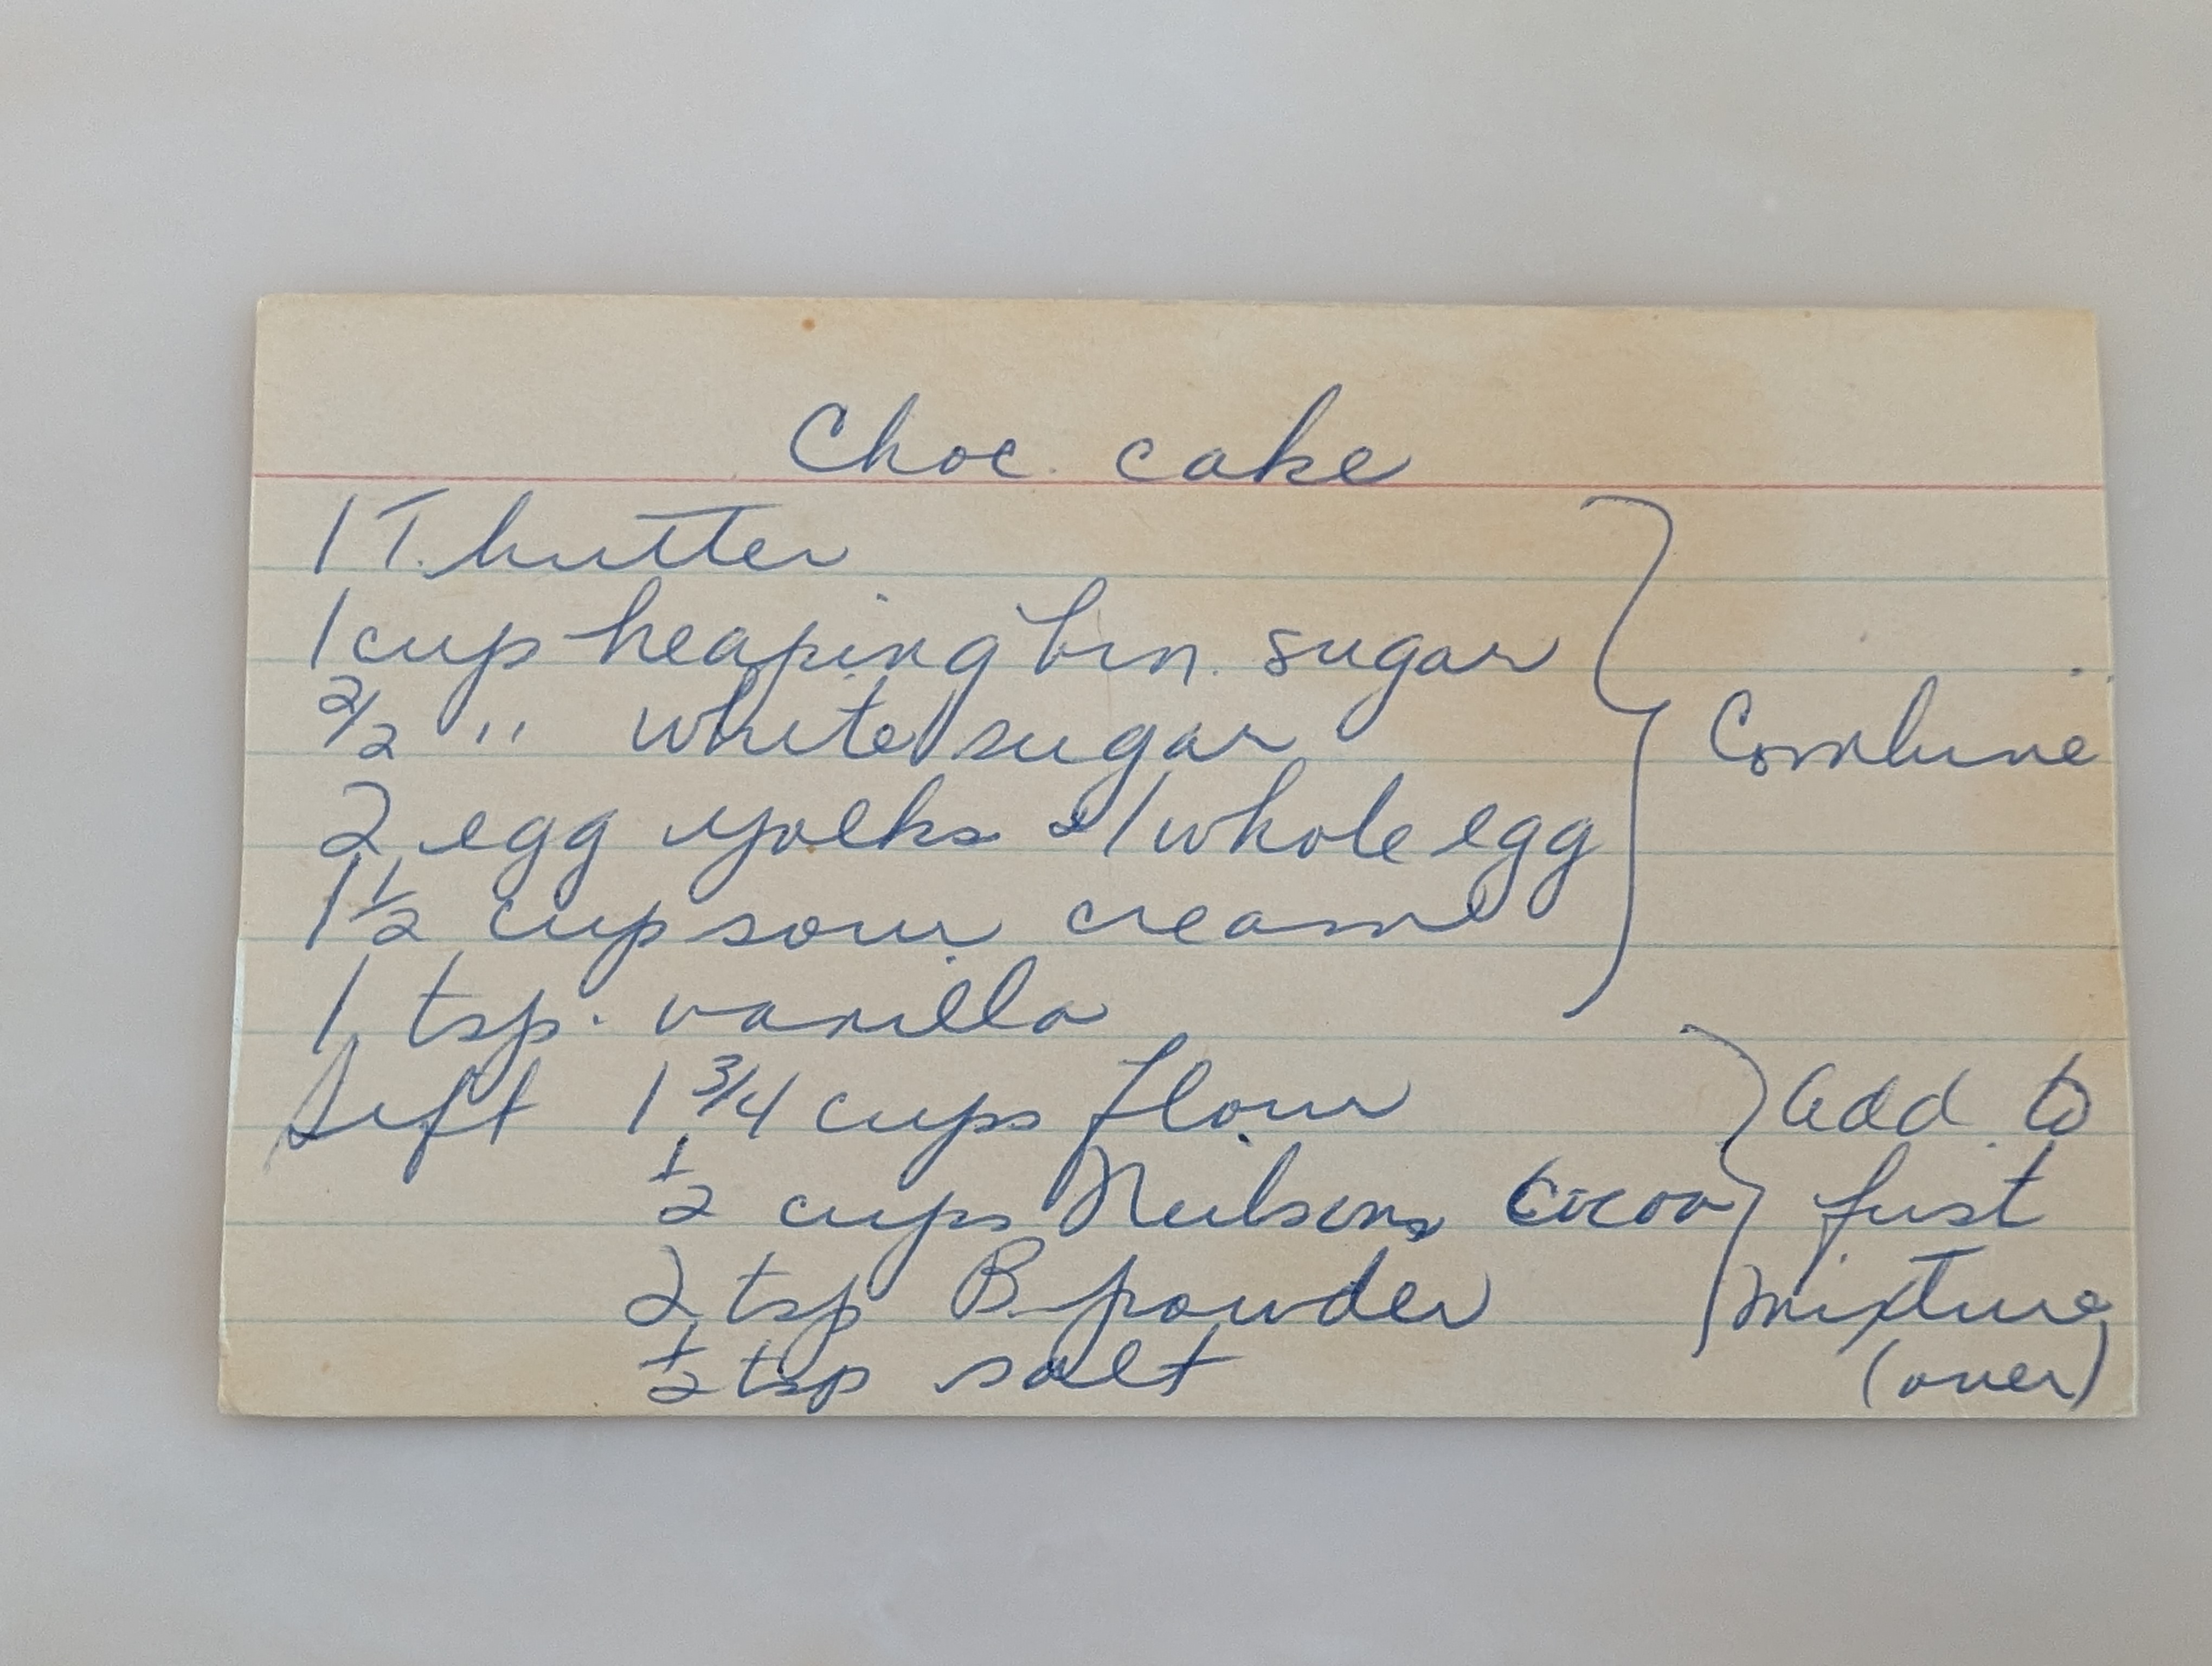 Choc. cake
1 T. butter
1 cup heaping brn. sugar
2/2 " white sugar
2 egg yolks & 1 whole egg
1 1/2 cup sour cream
1 tsp. vanilla
Combine
Sift 1 3/4 cups flour
1/2 cups Neilsons Cocoa
2 tsp B. powder
1/2 tsp salt
add to
first
mixture
(over)